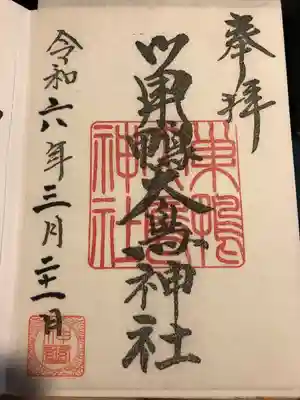 奉拝
巣鴨大鳥神社
令和六年三月二十一日
巣鴨
神社